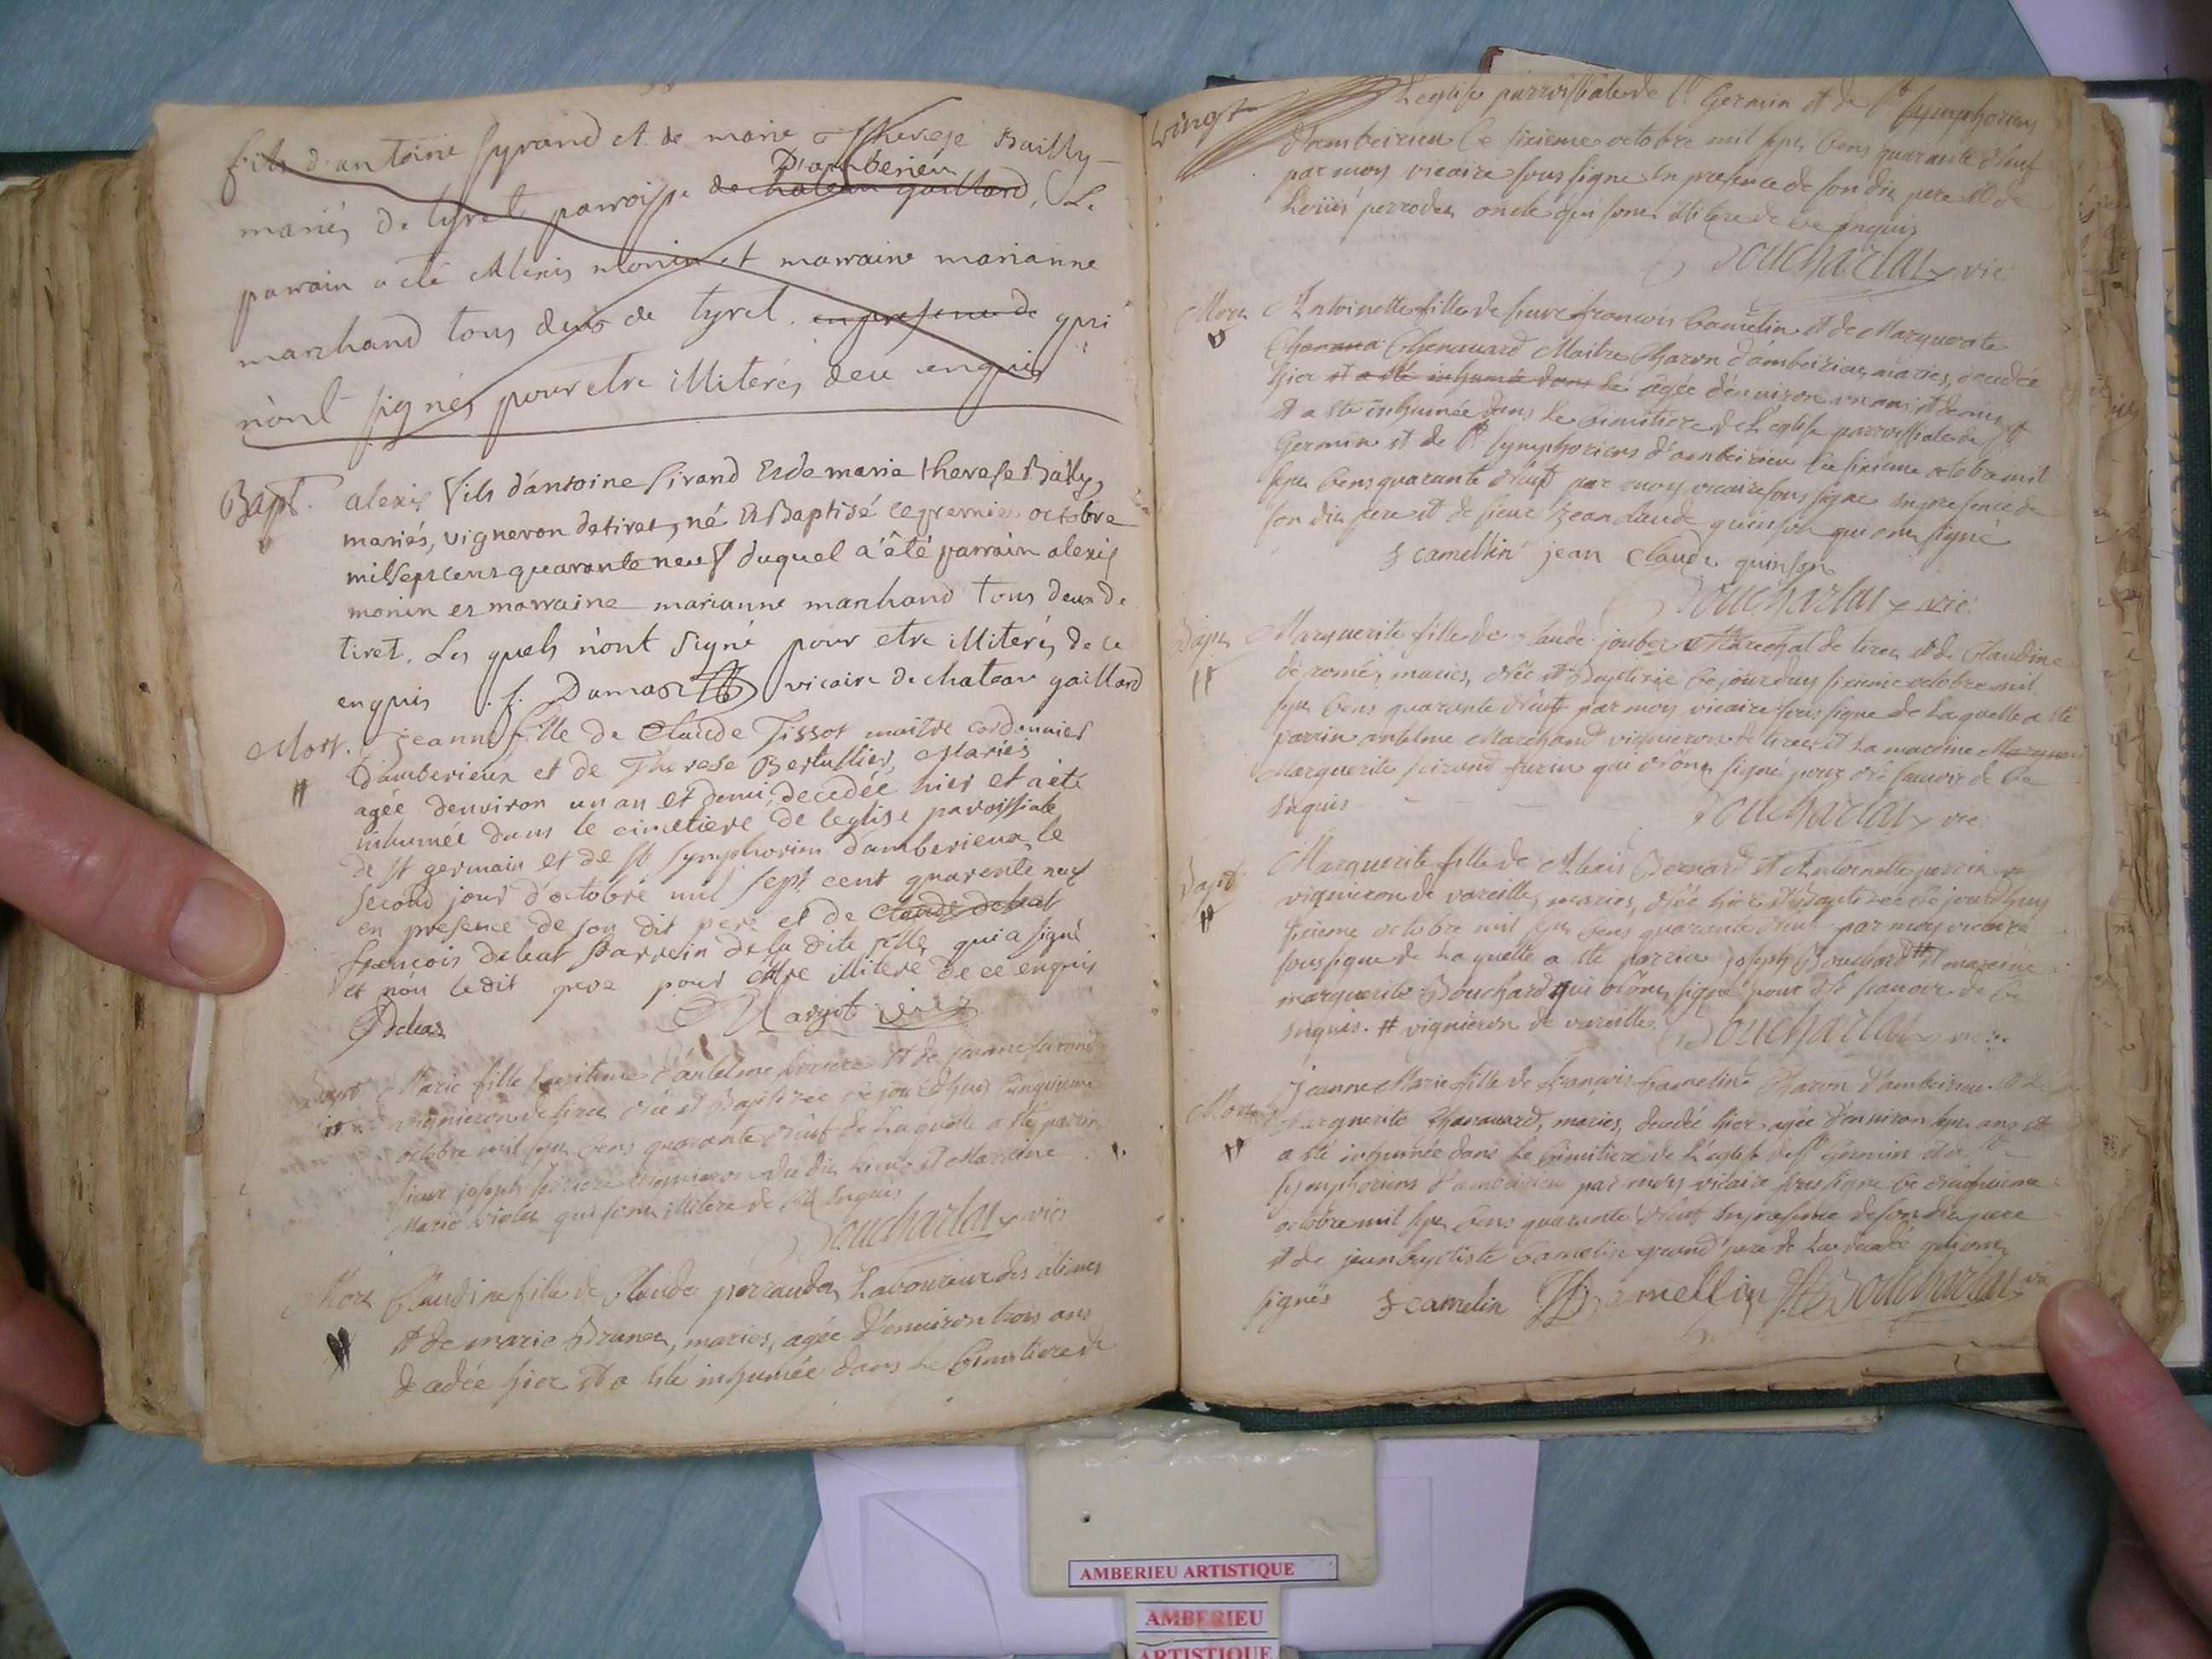 fils d'antoine syrand et de marie Therese Bailly
D'amberieu
mariés de tyret parroisse de chateau gaillard, Le
parrain a été Alexis monin et marraine marianne
marchand tous deux de tyret. en presence de qui
n'ont signés pour etre illiterés de ce enquis
Bapt. alexis fils d'antoine Sirand et de marie therese Bailly,
mariés, vigneron de tiret, né et Baptisé le premier octobre
mil sept cens quarante neuf duquel a été parrain alexis
monin et marraine marianne marchand tous deux de
tiret. Les quels n'ont signé pour etre illiterés de ce
enquis . f. Damas vicaire de chateau gaillard
Mort. Jeanne fille de Claude Tissot maitre cordonnier
D'amberieux et de Therese Bertullier, Mariés
agée d'environ un an et demi, decedée hier et a été
inhumée dans le cimetiere de leglise paroissiale
de st germain et de st symphorien d'amberieux, le
second jour d'octobre mil sept cent quarente neuf
en presence de son dit pere et de claude debeat
francois debeat parrein de la dite fille, qui a signé
et non le dit pere pour être illiteré de ce enquis
Debeat Margot vic
Bapt Marie fille legitime d'antelme ferriere et de jeanne sirand
vignieron de tiret née et Baptizée ce jourdhuy cinquieme
octobre mil sept cens quarante neuf de Laquelle a été parrin
sieur joseph ferriere vignieron du dit Lieu et Marraine
Marie violet qui sont illitere de ce Enquis
Boucharlat vic
Mort Claudine fille de Claude perraudet Laboureur des alimes
et de marie Brunet, maries, agée d'environ trois ans
decedée hier et a été inhumée dans le Cimetiere de
vingt
L'eglise parroissiale de St Germin et de St symphoriens
d'ambeirieu Ce sixieme octobre mil sept Cens quarante neuf
par moy vicaire sous signe en presence de son dit pere et de
Loüis perrodet oncle qui sont illitere de ce Enquis
Boucharlat vic
Mort Antoinette fille de sieur francois Camelin et de Marguerite
Chenavard Maitre Charon d'ambeirieu, maries, decedée
hier et a été inhumée dans le agée d'environ un an et demy
et a été inhumée dans Le Cimitiere de L'eglise parroissiale de St
Germin et de St symphoriens d'ambeirieu Ce sixieme octobre mil
sept Cens quarante neuf par moy vicaire sous signe En presence de
son dit pere et de sieur jean claude quinson qui ont signé
f camellin jean Claude quinson
Boucharlat vic
Bapt Marguerite fille de Claude joubert Marechal de tiret et de Claudine
de romé, maries, née et Baptizée Ce jourduy sixieme octobre mil
sept Cens quarante neuf par moy vicaire sous signe de Laquelle a été
parrin antelme Marchand vignieron de tiret et La marrine
Marguerite sirand qui n'ont signé pour ne sauoir de Ce
Enquis
Boucharlat vic
Bapt Marguerite fille de Alexis Bernard et Antoinette perrin
vignieron de vareille, maries, née hier et Baptizée Ce jourdhuy
sixieme octobre mil sept Cens quarante neuf par moy vicaire
soussigne de Laquelle a été parrin joseph Bouchard # et marrine
marguerite Bouchard qui n'ont signé pour ne scauoir de Ce
Enquis. # vignieron de vareille. Boucharlat vic
Mort Jeanne Marie fille de françois Camelin Charon d'ambeirieu et de
Marguerite Chenavard, maries, decedé hier agée d'environ sept ans et
a été inhumée dans Le Cimitiere de L'eglise de St Germin et de St
symphoriens d'ambeirieu par moy vicaire sous signe Ce
octobre mil sept Cens quarante neuf En presence de son dit pere
et de jean baptiste Camelin grand pere de La decedé qui ont
signés f camelin Camellin Boucharlat vic
AMBERIEU ARTISTIQUE
AMBERIEU
ARTISTIQUE